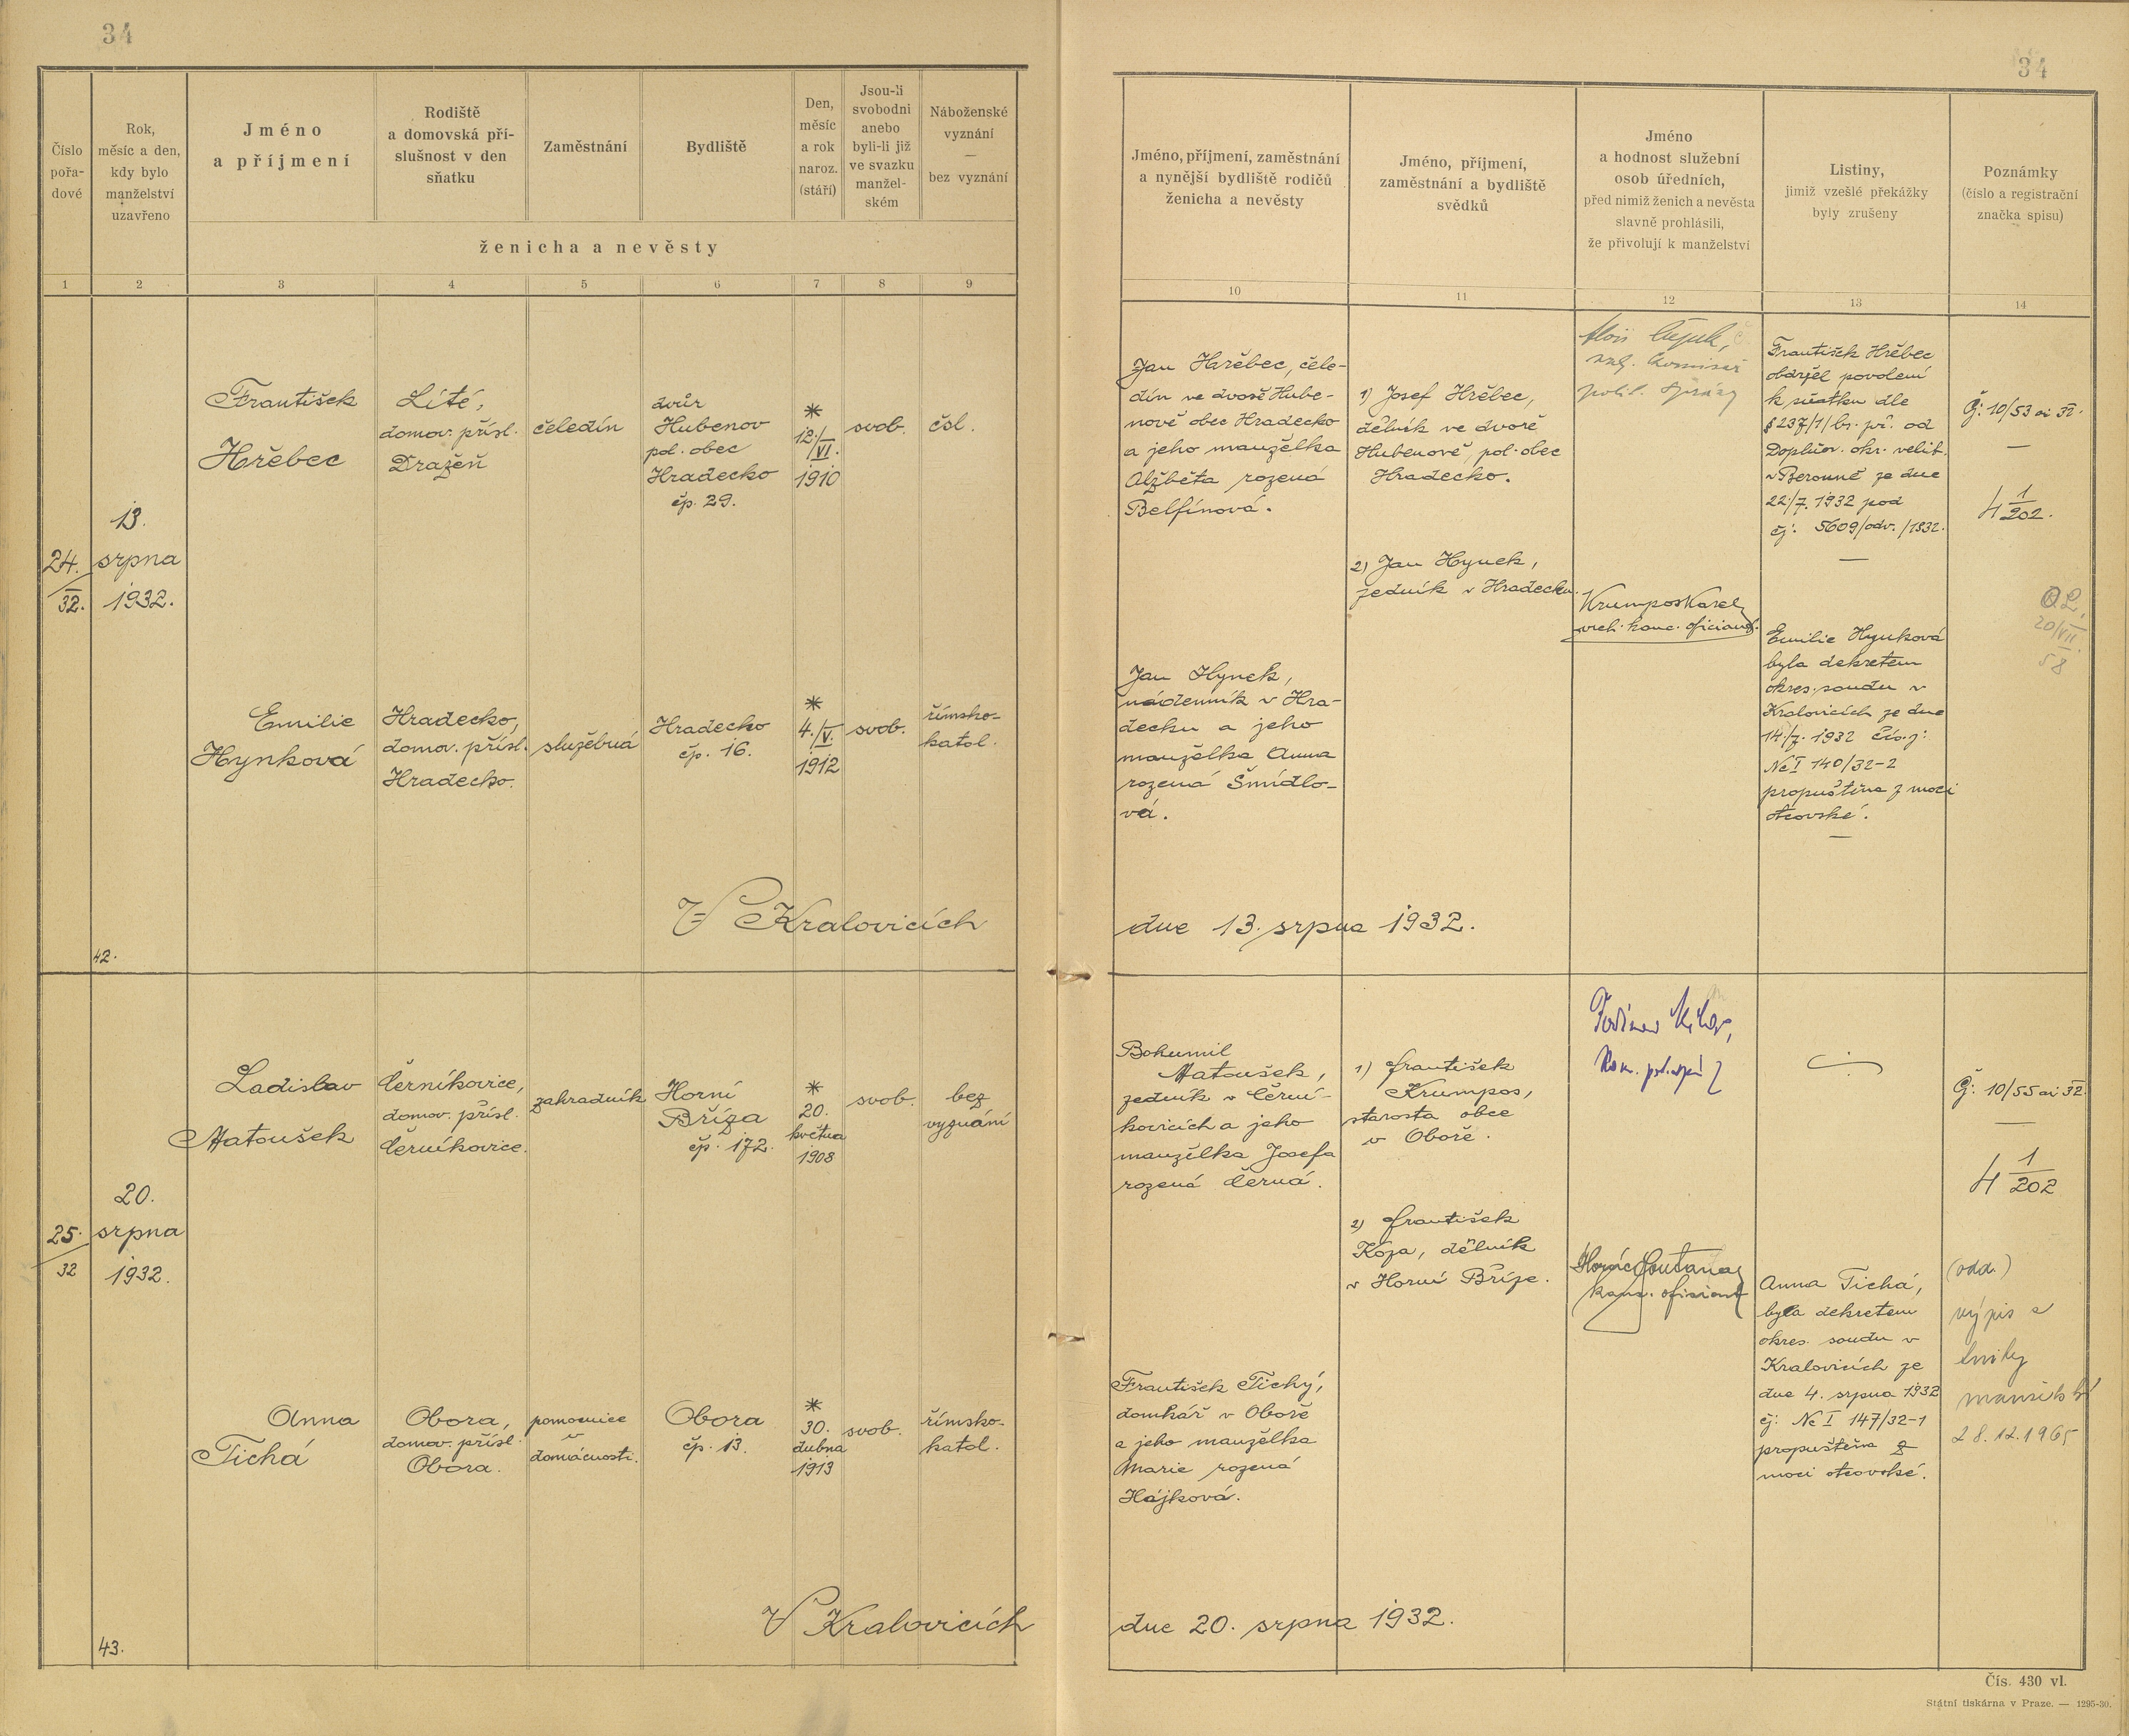 34
34
Číslo
pořa-
dové
Rok,
měsíc a den,
kdy bylo
manželství
uzavřeno
Jméno
a příjmení
Rodiště
a domovská pří-
slušnost v den
sňatku
Zaměstnání
Bydliště
Den,
měsíc
a rok
naroz.
(stáří)
Jsou-li
svobodni
anebo
byli-li již
ve svazku
manžel-
ském
Náboženské
vyznání
—
bez vyznání
ženicha a nevěsty
Jméno, příjmení, zaměstnání
a nynější bydliště rodičů
ženicha a nevěsty
Jméno, příjmení,
zaměstnání a bydliště
svědků
Jméno
a hodnost služební
osob úředních,
před nimiž ženich a nevěsta
slavně prohlásili,
že přivolují k manželství
Listiny,
jimiž vzešlé překážky
byly zrušeny
Poznámky
(číslo a registrační
značka spisu)
1 2 3 4 5 6 7 8 9 10 11 12 13 14
24.
32.
13.
srpna
1932.
František
Hřebec
Lité,
domov. přísl.
Dražeň
čeledín
dvůr
Hubenov
pol. obec
Hradecko
čp. 29.
*
12./VI.
1910
svob.
čsl.
Emilie
Hynková
Hradecko,
domov. přísl.
Hradecko.
služebná
Hradecko
čp. 16.
*
4./V.
1912
svob.
římsko-
katol.
V Kralovicích
42.
Jan Hřebec, čele-
dín ve dvoře Hube-
nově obec Hradecko
a jeho manželka
Alžběta rozená
Belfínová.
Jan Hynek,
nádenník v Hra-
decku a jeho
manželka Anna
rozená Šmídlo-
vá.
1) Josef Hřebec,
dělník ve dvoře
Hubenově, pol. obec
Hradecko.
2) Jan Hynek,
zedník v Hradecku.
Alois
komisař
polit. správy
Krumpos Karel
vrch. kanc. oficiant.
František Hřebec
obdržel povolení
k sňatku dle
§ 237/1/br. př. od
Doplňov. okr. velit.
v Berouně ze dne
22./7. 1932 pod
čj: 5609/odv./1932.
—
Emilie Hynková
byla dekretem
okres. soudu v
Kralovicích ze dne
14./7. 1932 čís. j:
Nc I 140/32-2
propuštěna z moci
otcovské.
—
Č: 10/53 ai 32.
—
4 1/202.
20/VII.
58
dne 13. srpna 1932.
25.
32
20.
srpna
1932.
Ladislav
Matoušek
Černíkovice,
domov. přísl.
Černíkovice.
zahradník
Horní
Bříza
čp. 172.
*
20.
května
1908
svob.
bez
vyznání
Anna
Tichá
Obora,
domov. přísl.
Obora.
pomocnice
v
domácnosti.
Obora
čp. 13.
*
30.
dubna
1913
svob.
římsko-
katol.
V Kralovicích
43.
Bohumil
Matoušek,
zedník v Černí-
kovicích a jeho
manželka Josefa
rozená Černá.
František Tichý,
domkář v Oboře
a jeho manželka
Marie rozená
Hájková.
1) František
Krumpos,
starosta obce
v Oboře.
2) František
Koza, dělník
v Horní Bříze.
kanc. oficiant
Anna Tichá,
byla dekretem
okres. soudu v
Kralovicích ze
dne 4. srpna 1932
čj: Nc I 147/32-1
propuštěna z
moci otcovské.
Č: 10/55 ai 32.
—
4 1/202
(odd.)
výpis z
knihy
manželské
28.12.1965
dne 20. srpna 1932.
Čís. 430 vl.
Státní tiskárna v Praze. — 1295-30.